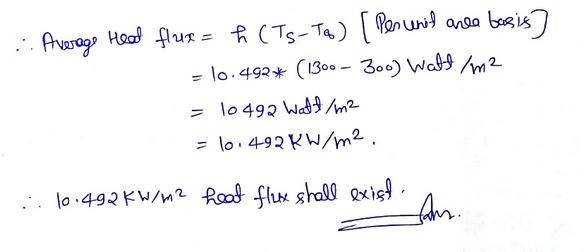 ∴ Average Heat flux = h (Ts - T∞) [Per unit area basis]
= 10.492 * (1300 - 300) Watt/m2
= 10492 Watt/m2
= 10.492 KW/m2.
∴ 10.492 KW/m2 heat flux shall exist.
Ans.